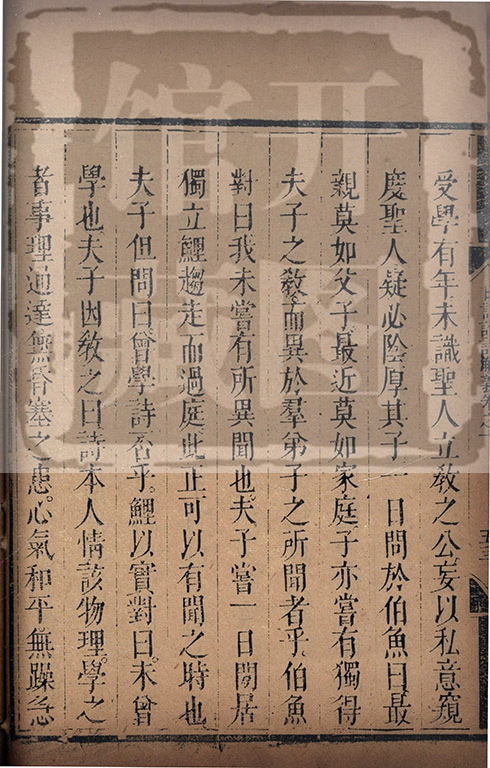 受學有年未識聖人立教之公妄以私意窺
度聖人疑必陰厚其子一日問於伯魚曰最
親莫如父子最近莫如家庭子亦嘗有獨得
夫子之教而異於羣弟子之所聞者乎伯魚
對曰我未嘗有所異聞也夫子嘗一日閒居
獨立鯉趨走而過庭此正可以有聞之時也
夫子但問曰曾學詩否乎鯉以實對曰未曾
學也夫子因教之曰詩本人情該物理學之
者事理通達無昏塞之患心氣和平無躁急